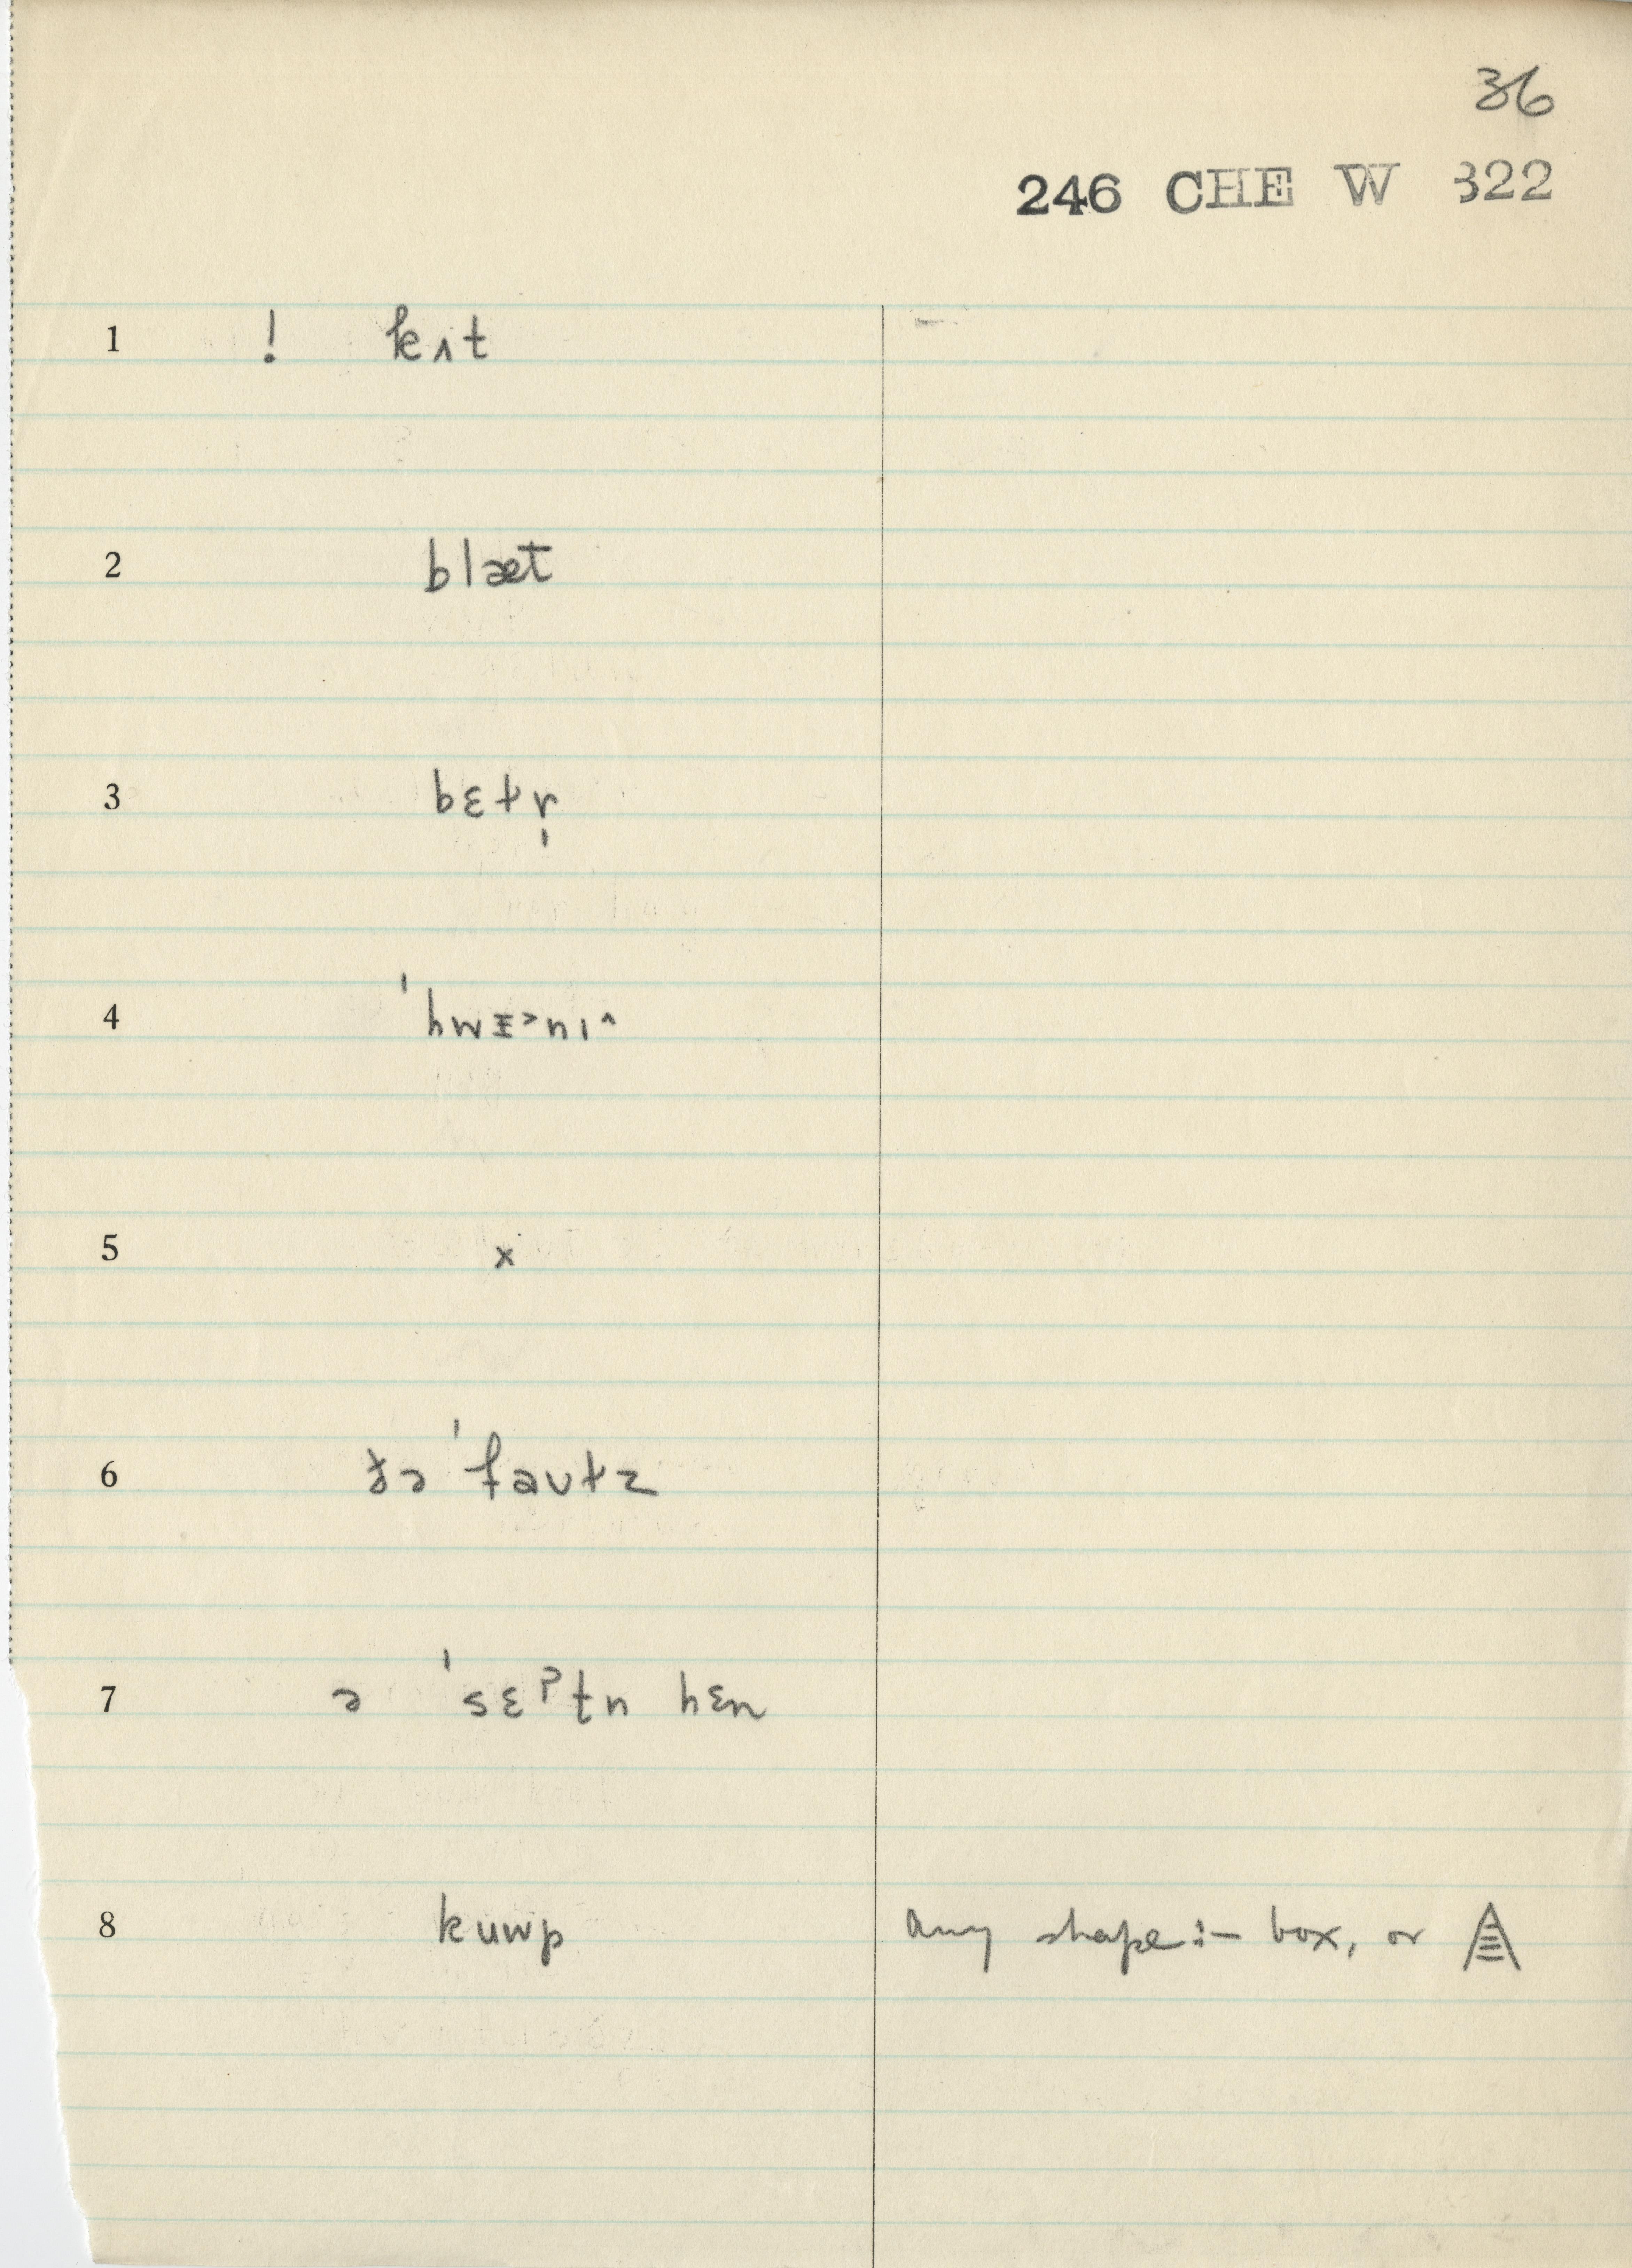 36
246 CHE W 322
1 ! kʌt
2 blæt
3 bɛt̬r̩
4 ˈhwɪ˃nɪ^
5 x
6 ðə ˈfaʊt̬z
7 ə ˈsɛˀtn hɛn
8 kuwp any shape:- box, or